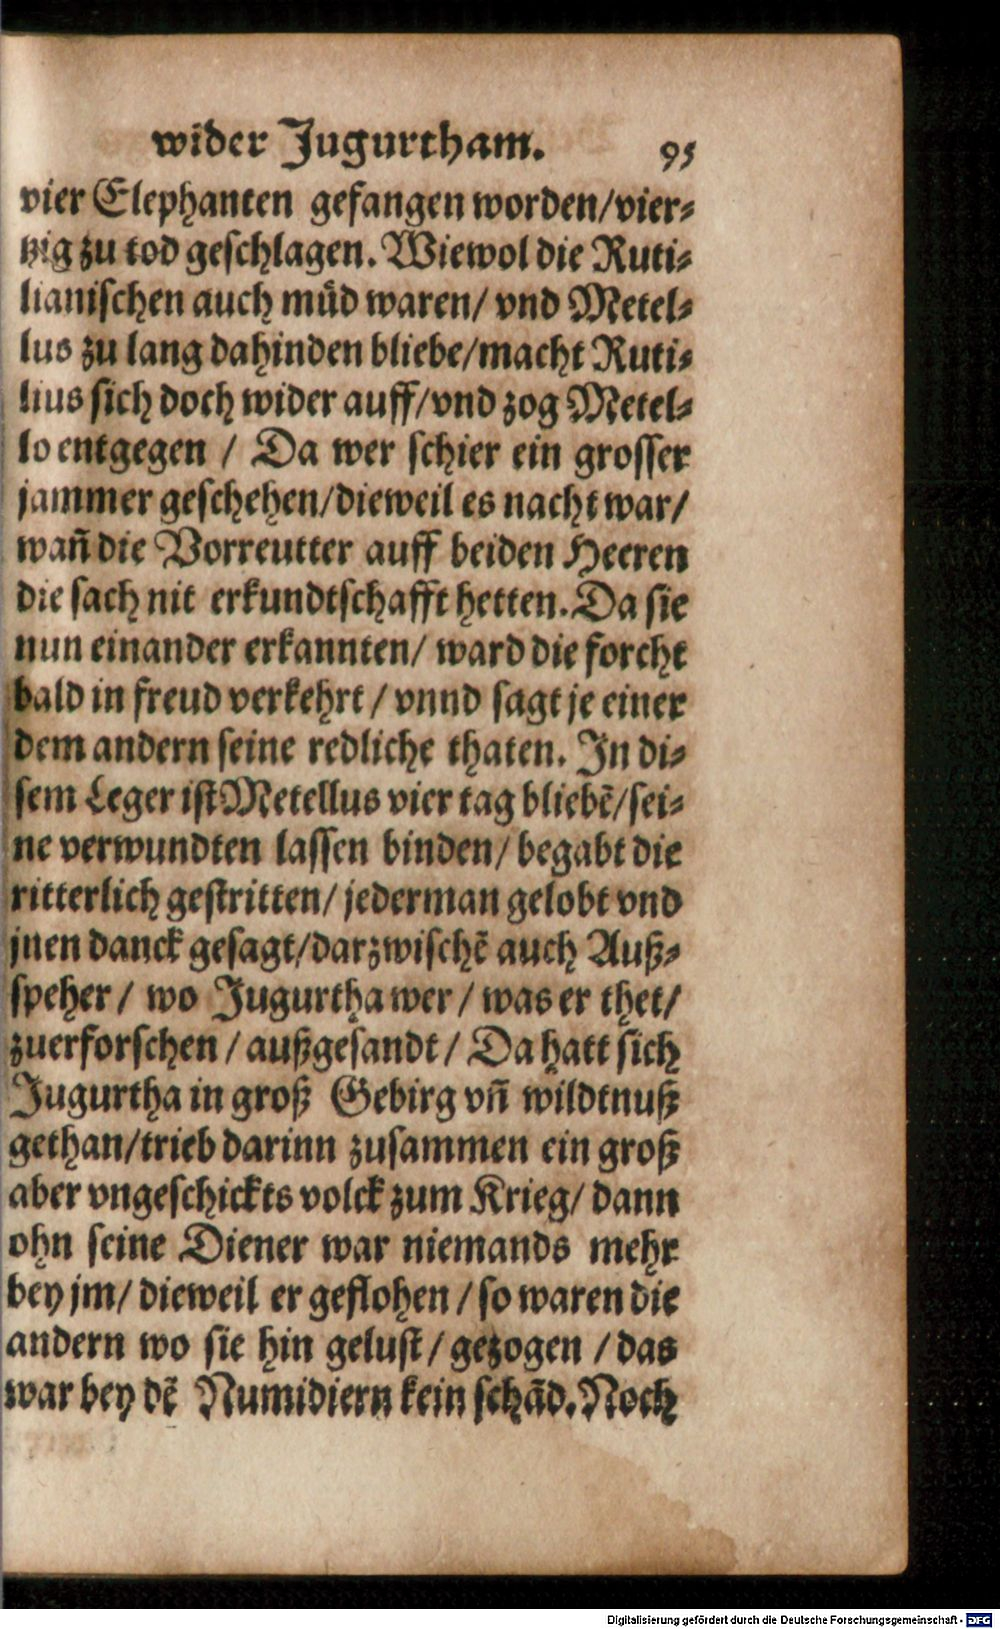 wider Jugurtham. 95
vier Elephanten gefangen worden/vier⸗
tzig zu tod geschlagen. Wiewol die Ruti⸗
lianischen auch müd waren/ vnd Metel⸗
lus zu lang dahinden bliebe/macht Ruti⸗
lius sich doch wider auff/vnd zog Metel⸗
lo entgegen / Da wer schier ein grosser
jammer geschehen/dieweil es nacht war/
wañ die Vorreutter auff beiden Heeren
die sach nit erkundtschafft hetten. Da sie
nun einander erkannten/ ward die forcht
bald in freud verkehrt / vnnd sagt je einer
dem andern seine redliche thaten. In di⸗
sem Leger ist Metellus vier tag bliebẽ/sei⸗
ne verwundten lassen binden/ begabt die
ritterlich gestritten/ jederman gelobt vnd
jnen danck gesagt/darzwischẽ auch Auß⸗
speher / wo Jugurtha wer / was er thet/
zuerforschen / außgesandt / Da hatt sich
Jugurtha in groß Gebirg vñ wildtnuß
gethan/trieb darinn zusammen ein groß
aber vngeschickts volck zum Krieg/ dann
ohn seine Diener war niemands mehr
bey jm/ dieweil er geflohen / so waren die
andern wo sie hin gelust/ gezogen / das
war bey dẽ Numidiern kein schãd. Noch
Digitalisierung gefördert durch die Deutsche Forschungsgemeinschaft - DFG